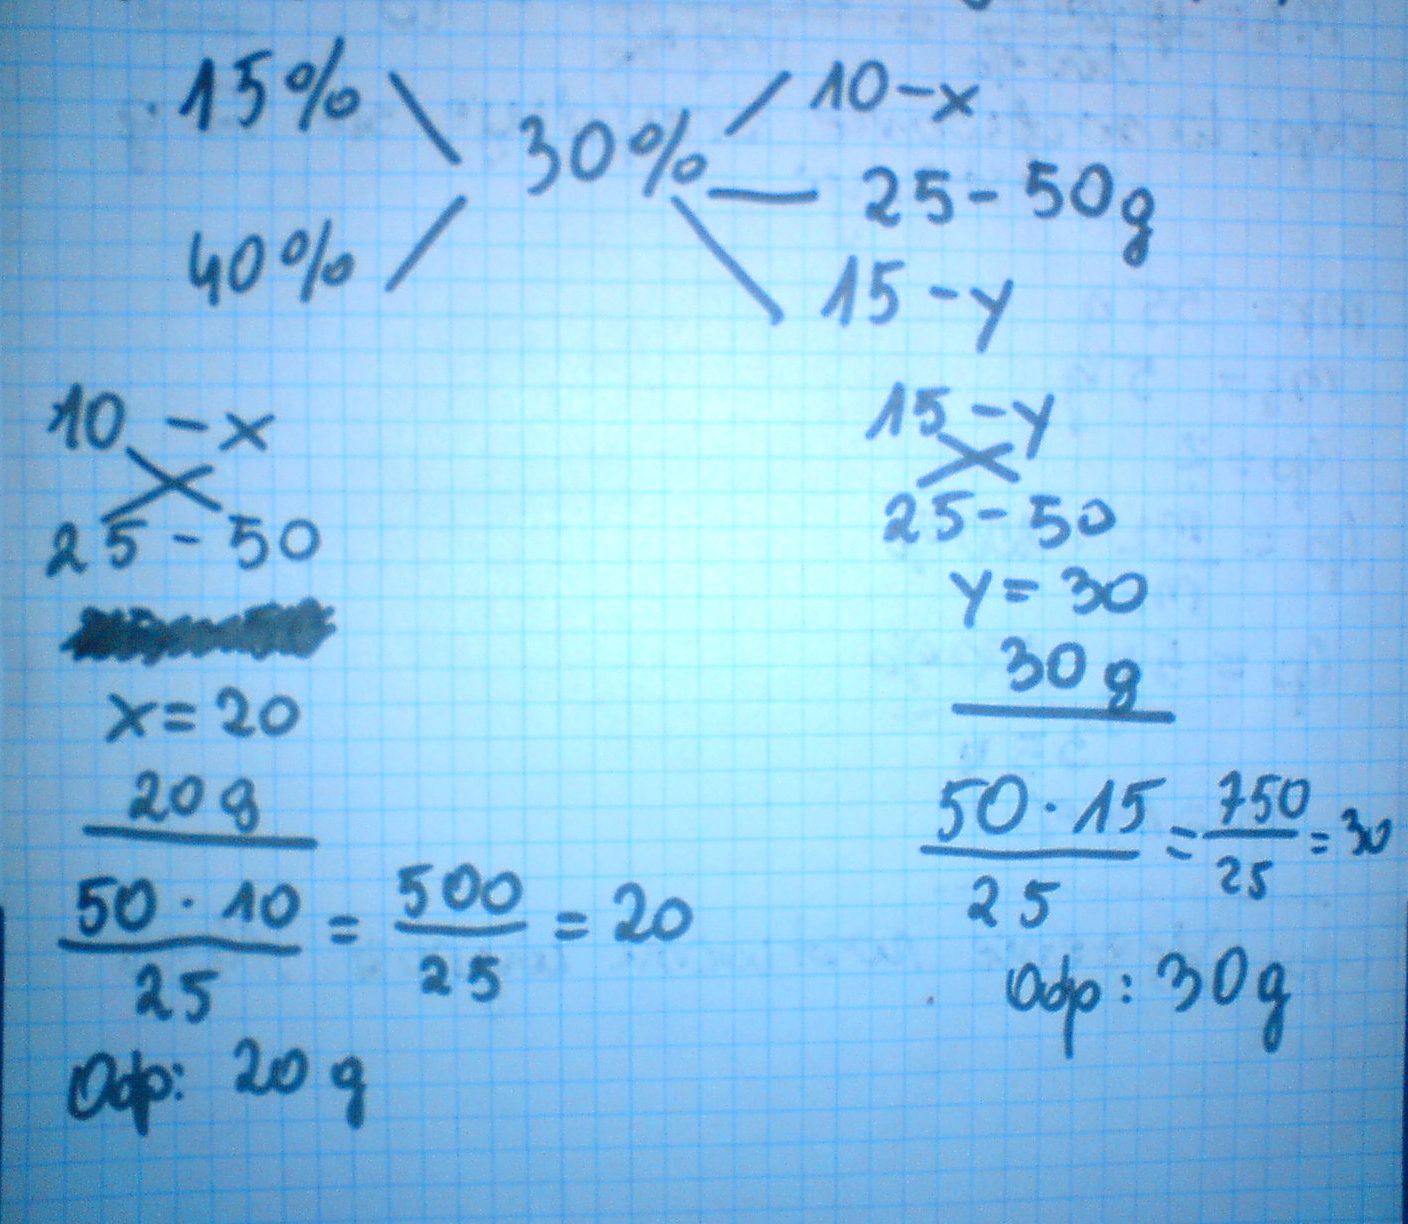 15% 30% 10-x
25-50g
40% 15-y
10-x
25-50
x=20
20g
50·10/25 = 500/25 = 20
Odp: 20g
15-y
25-50
y=30
30g
50·15/25 = 750/25 = 30
Odp: 30g